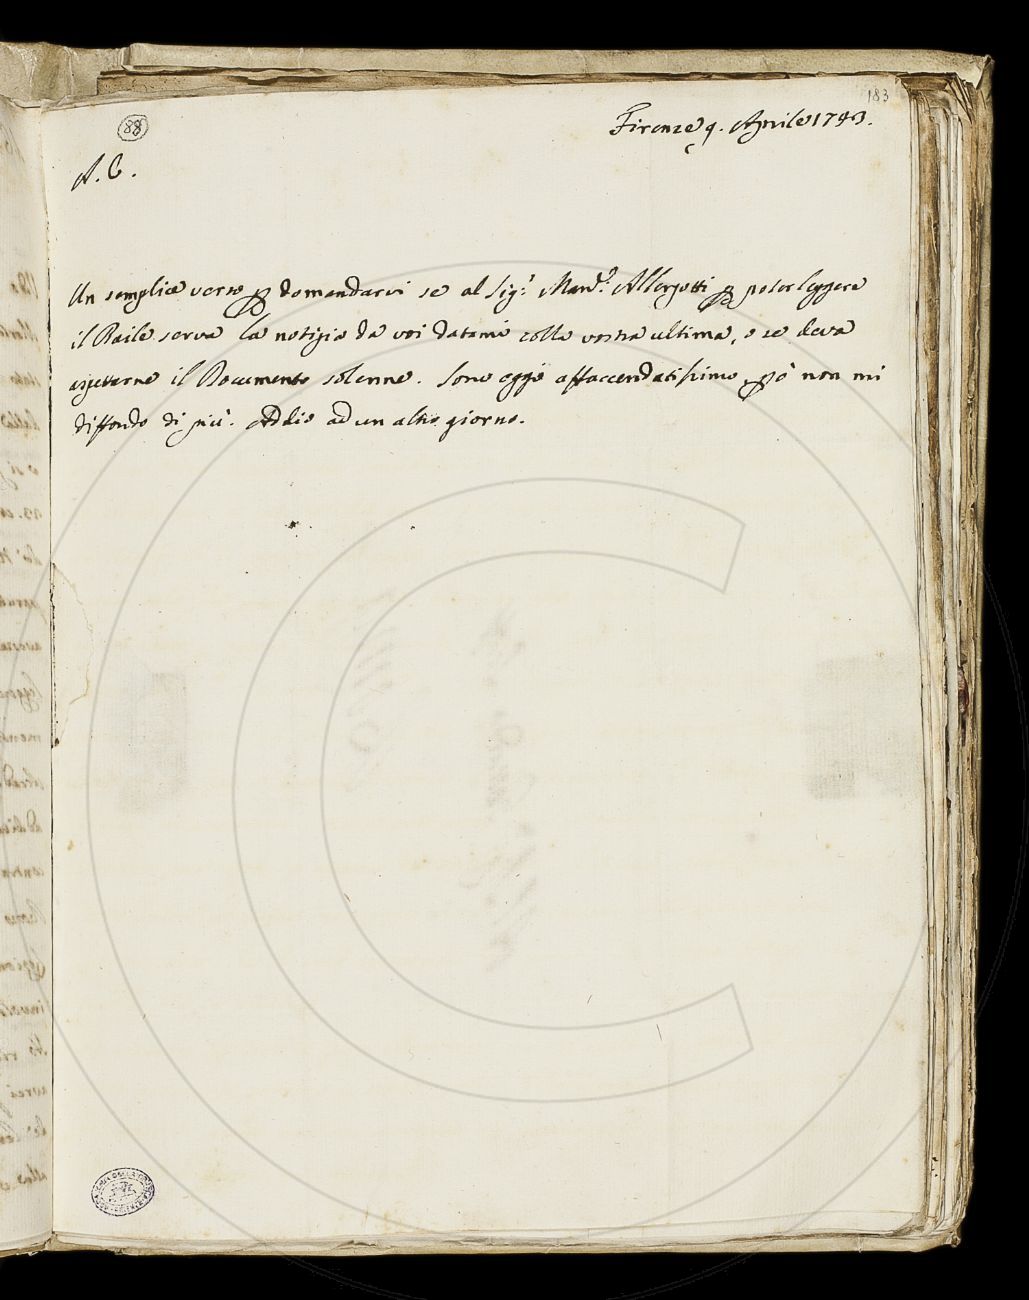 183
88
Firenze 9. Aprile 1793.
A. C.
Un semplice verso p domandarvi se al Sig.r Mar.e Albergotti p poter leggere
il Baile serva la notizia da voi datami colla vostra ultima, o se deva
aspettarne il Documento solenne. Sono oggi affaccendatissimo, pò non mi
diffondo di più. Addio ad un altro giorno.